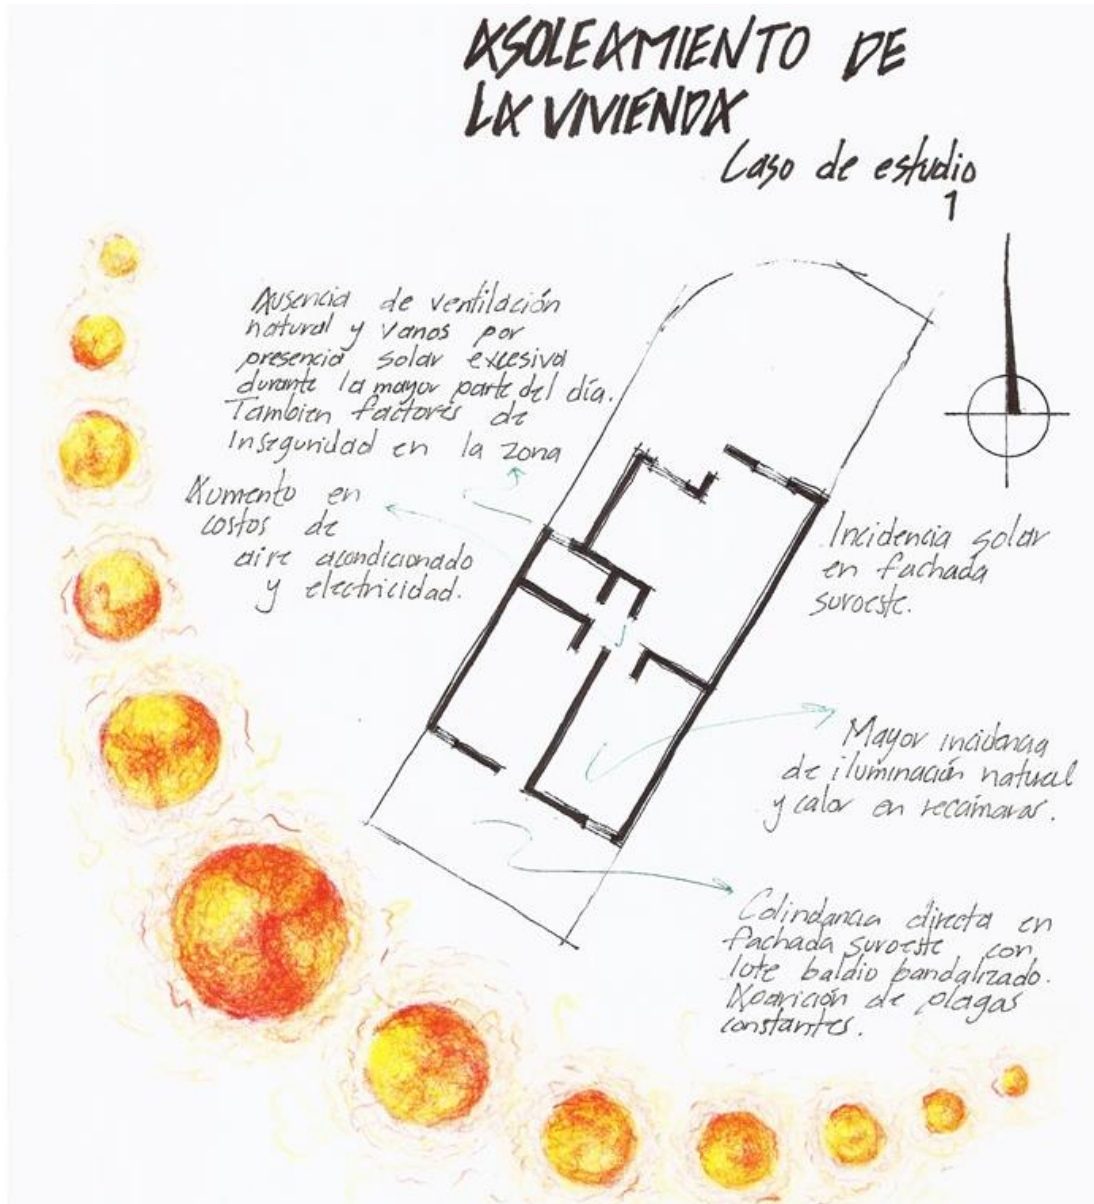 ASOLEAMIENTO DE
LA VIVIENDA
Caso de estudio
1
Ausencia de ventilación
natural y vanos por
presencia solar excesiva
durante la mayor parte del día.
Tambien factores de
Inseguridad en la zona
Aumento en
costos de
aire acondicionado
y electricidad.
Incidencia solar
en fachada
suroeste.
Mayor incidencia
de iluminación natural
y calor en recámaras.
Colindancia directa en
fachada suroeste con
lote baldio bandalizado.
Aparición de plagas
constantes.